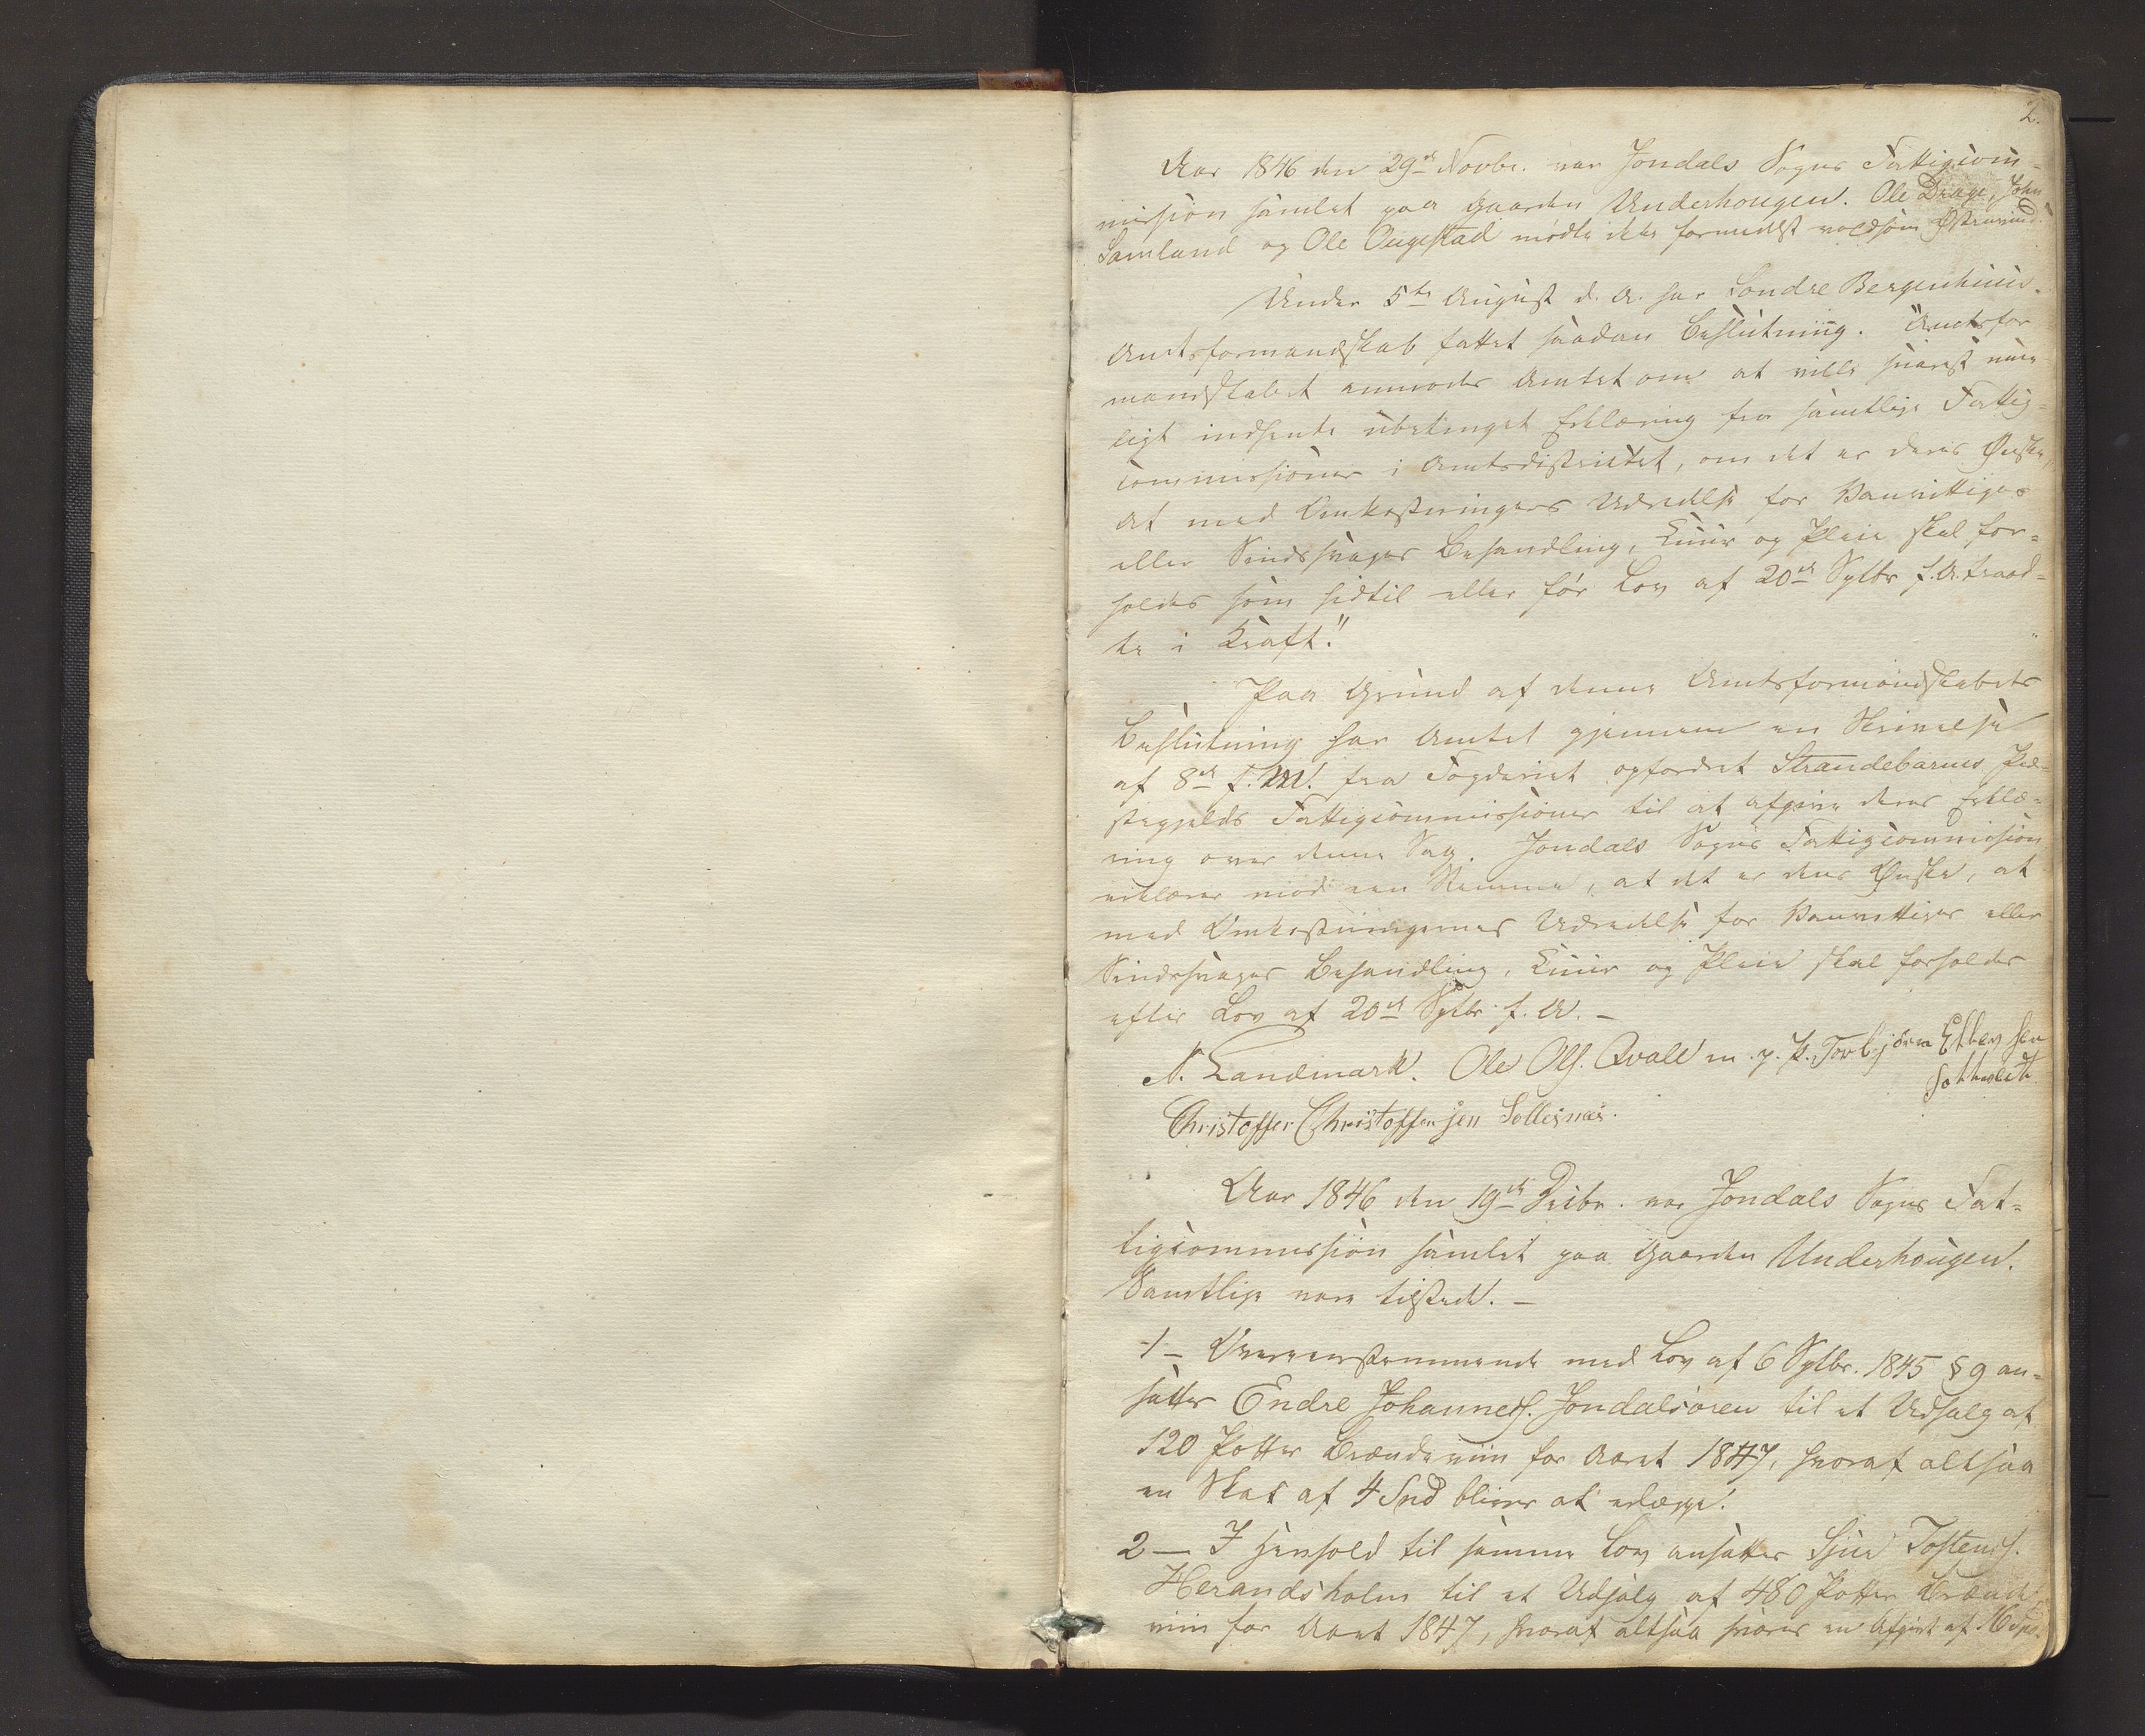 2.
Aar 1846 den 29de Novbr. var Jondals Sogns Fattigcom-
mission samlet paa Gaarden Underhougen. Ole Drage, John
Samland og Ole Augestad mødte ikke formedelst voldsom Østenvind.
Under 5te August d. A. har Søndre Bergenhuus-
Amtsformandskab fattet saadan Beslutning. "Amtsfor
mandskabet anmoder Amtet om at ville snarest mue
ligt indhente ubetinget Erklæring fra samtlige Fattig-
commissioner i Amtsdistrictet, om det er deres Ønske,
at med Omkostningers Udredelse for Vanvittiges
eller Sindssvages Behandling, Kuur og Pleie skal for-
holdes som hidtil eller før Lov af 20de Septbr f. A. traad-
te i Kraft."
Paa Grund af denne Amtsformandskabets
Beslutning har Amtet gjennem en Skrivelse
af 8de f. M. fra Fogderiet opfordret Strandebarms Præ-
stegjelds Fattigcommissioner til at afgive deres Erklæ-
ring over denne Sag. Jondals Sogns Fattigcommission
erklærer mod een Stemme, at det er dens Ønske, at
med Omkostningernes Udredelse for Vanvittiges eller
Sindssvages Behandling, Kuur og Pleie skal forholdes
efter Lov af 20de Septbr f. A. -
N. Landmark. Ole Ols. Qvale m. p. P. Torbjørn
Christoffer Christoffersen Sollesnæs.
Aar 1846 den 19de Decbr. var Jondals Sogns Fat-
tigcommission samlet paa Gaarden Underhougen.
Samtlige vare tilstede. -
1 - Overeenstemmende med Lov af 6 Septbr. 1845 § 9 an-
sættes Endre Johanness. Jondalsøren til et Udsalg af
120 Potter Brændeviin for Aaret 1847, hvoraf altsaa
en Skat af 4 Spd bliver at erlægge.
2 - I Henhold til samme Lov ansættes Sjur Tostens.
Herandsholm til et Udsalg af 480 Potter Brænde
viin for Aaret 1847, hvoraf altsaa svares en Afgivt af 16 Spd.